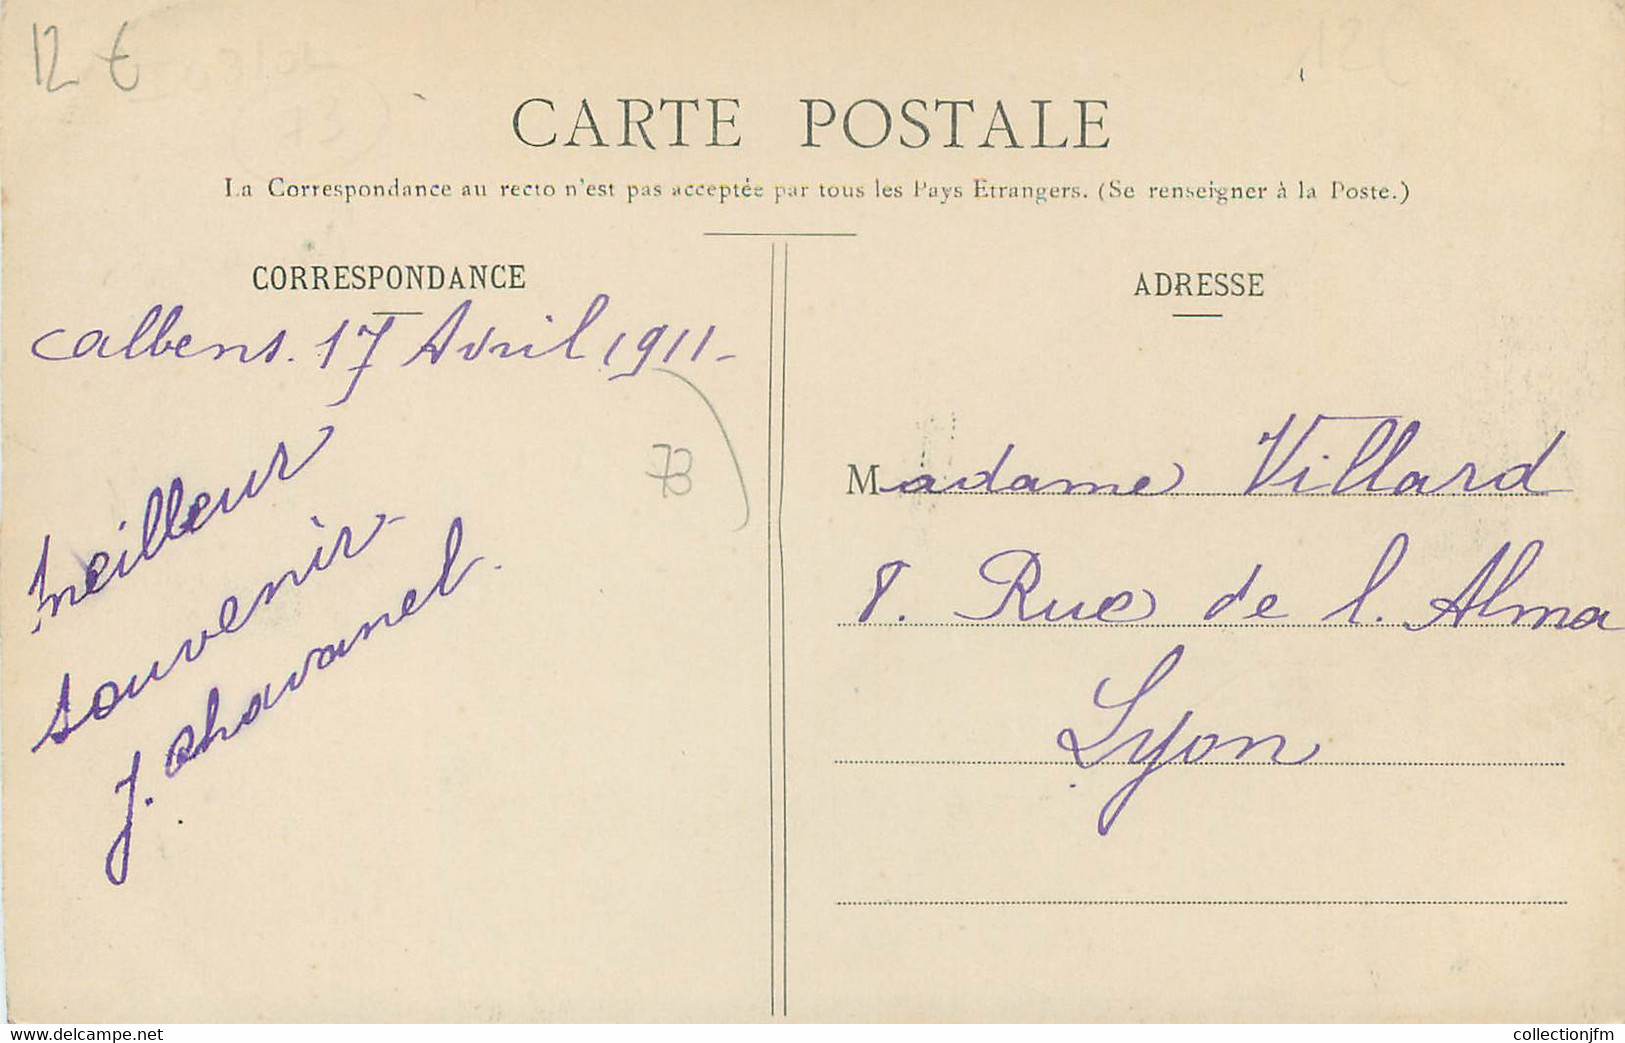 12 €
12 €
73
CARTE POSTALE
La Correspondance au recto n'est pas acceptée par tous les Pays Etrangers. (Se renseigner à la Poste.)
CORRESPONDANCE
Calbens. 17 Avril 1911-
73
meilleur
souvenir
J. Chavanel.
ADRESSE
Madame Villard
8. Rue de l. Alma
Lyon
www.delcampe.net
collectionjfm